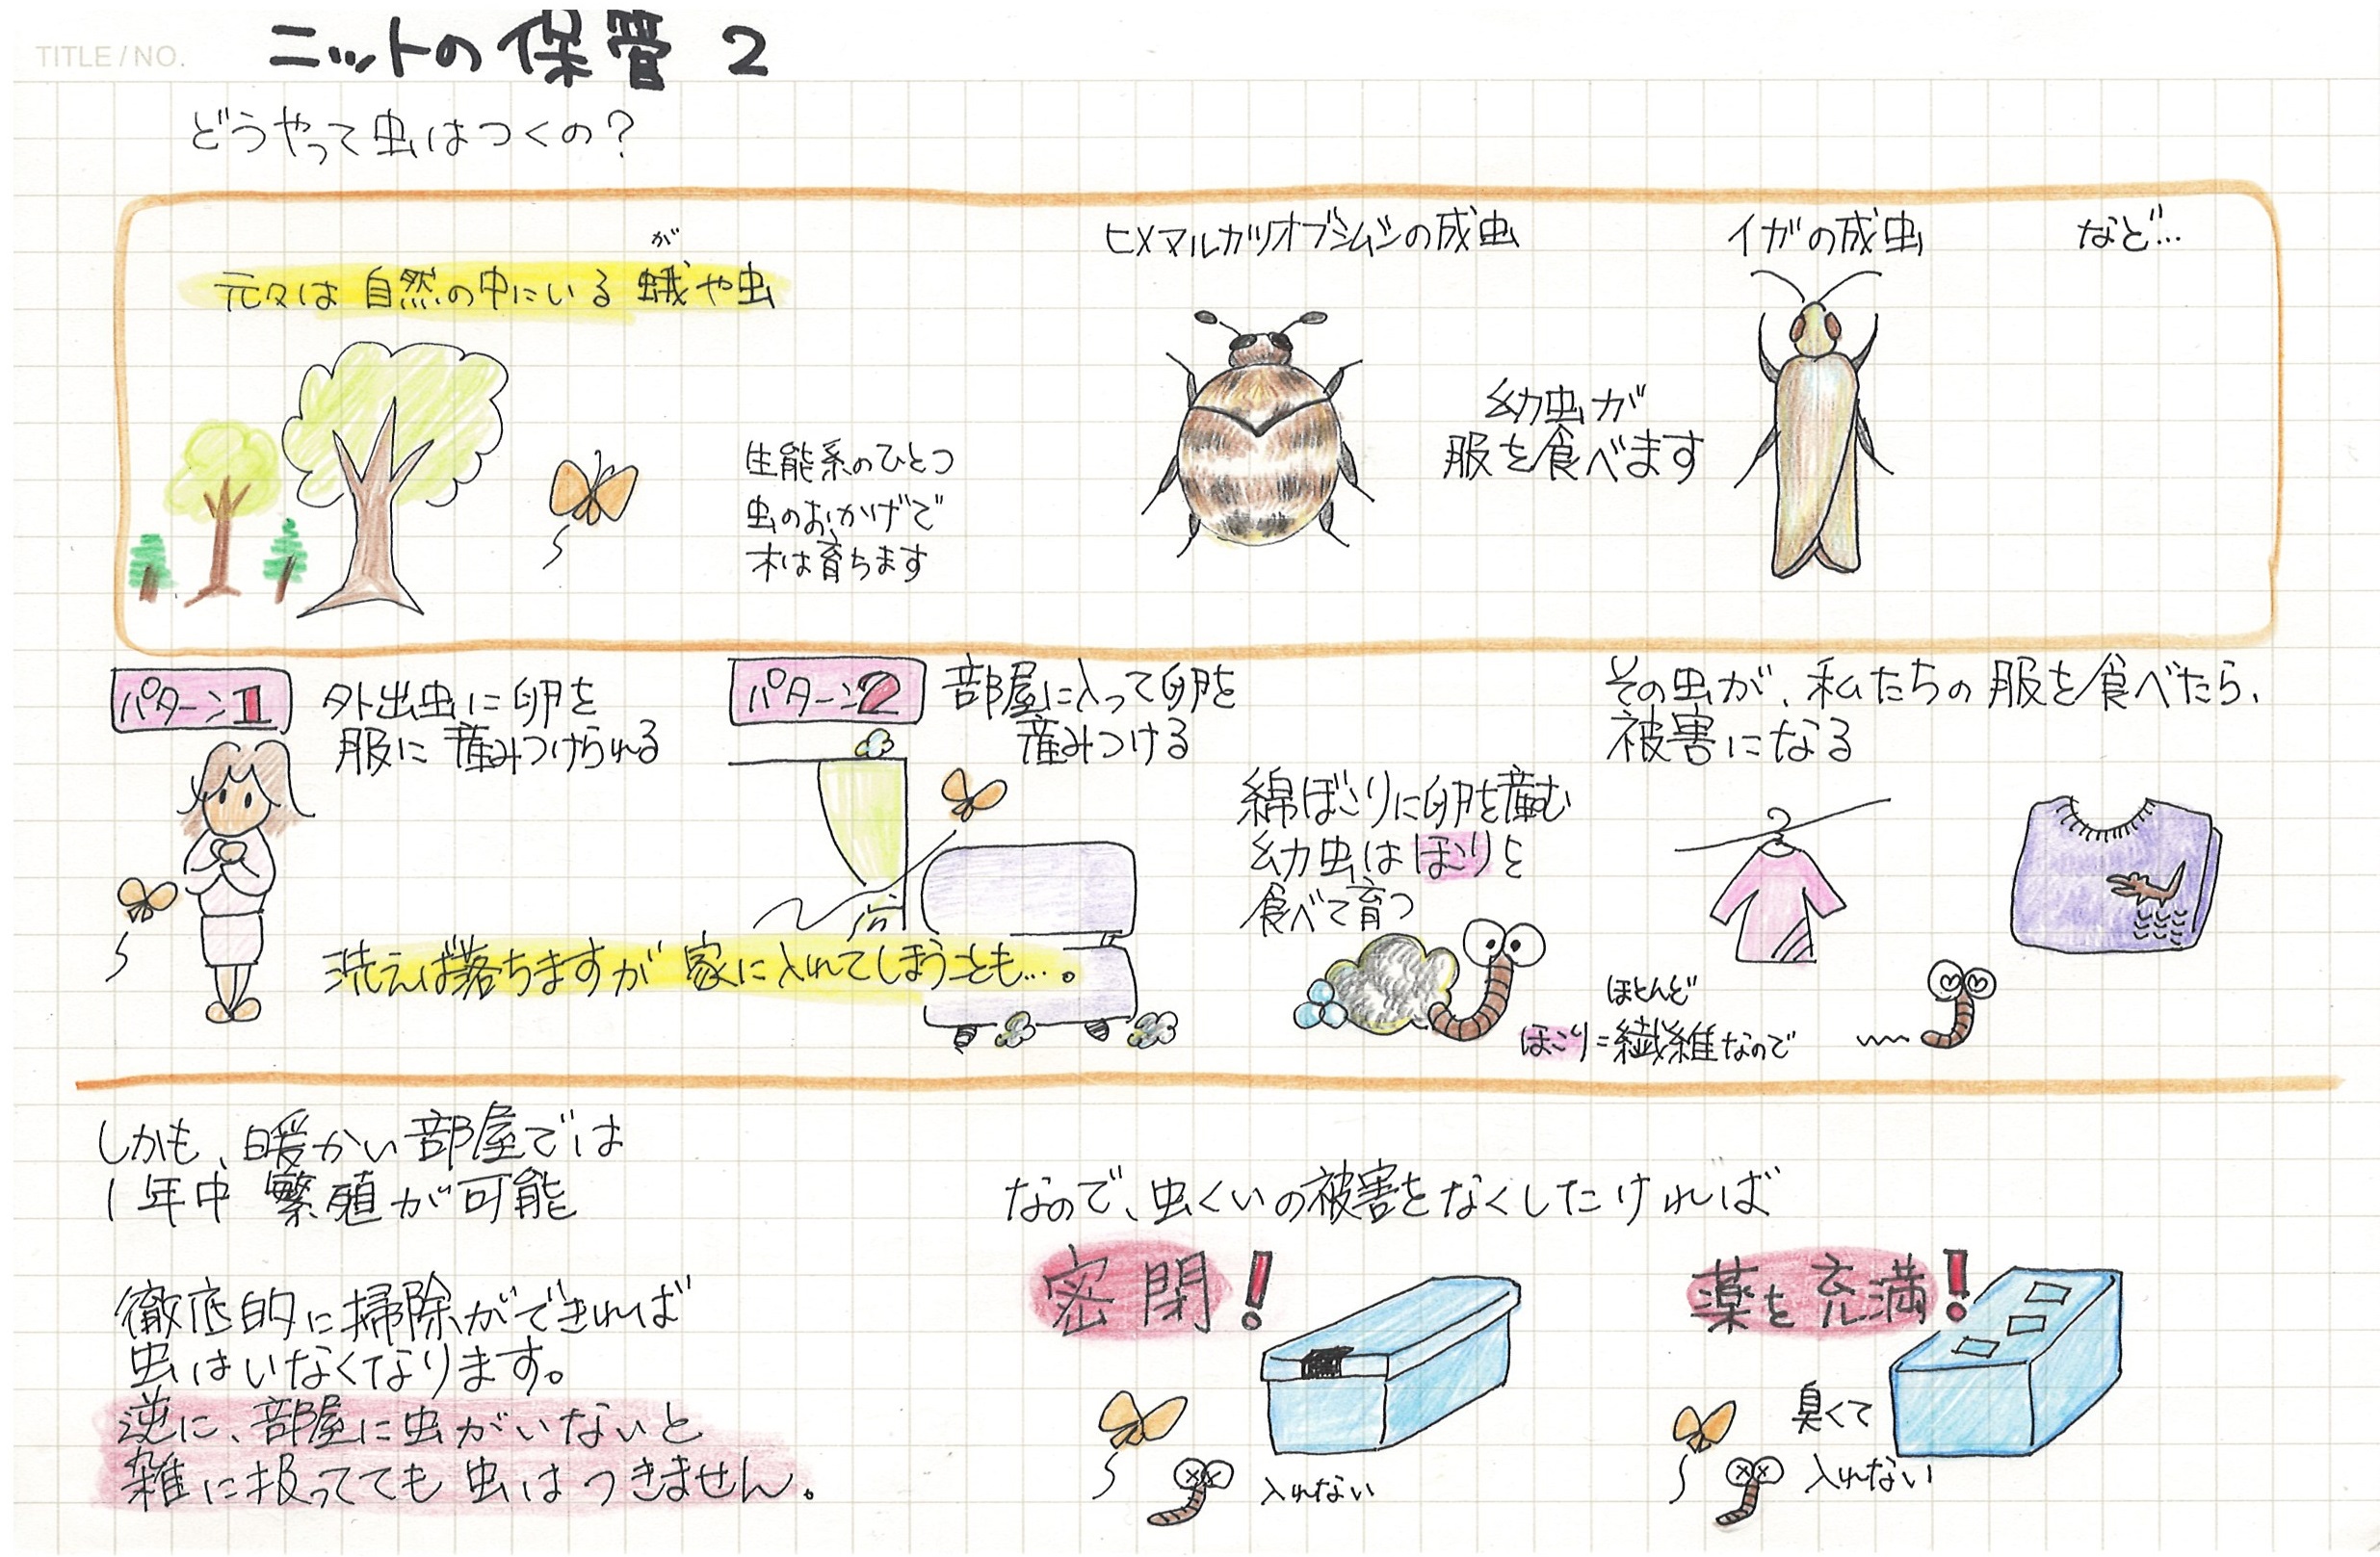 TITLE / NO.
ニットの保管 2
どうやって虫はつくの?
が
元々は 自然の中にいる 蛾や虫
生能系のひとつ
虫のおかげで
木は育ちます
ヒメマルカツオブシムシの成虫
イガの成虫
など…
幼虫が
服を食べます
パターン1
外出虫に卵を
服に 産みつけられる
パターン2
部屋に入って卵を
産みつける
洗えば落ちますが 家に入れてしまうことも…。
綿ぼこりに卵を産む
幼虫は ほこりを
食べて育つ
その虫が、私たちの 服を食べたら、
被害になる
ほとんど
ほこり=繊維なので
しかも、暖かい部屋では
1年中 繁殖が可能
徹底的に掃除ができれば
虫はいなくなります。
逆に、部屋に虫がいないと
雑に扱ってても 虫はつきません。
なので、虫くいの被害をなくしたければ
密閉!
入れない
薬を充満!
臭くて
入れない